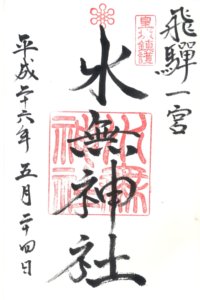 飛騨一宮
水無神社
平成二十六年五月二十四日